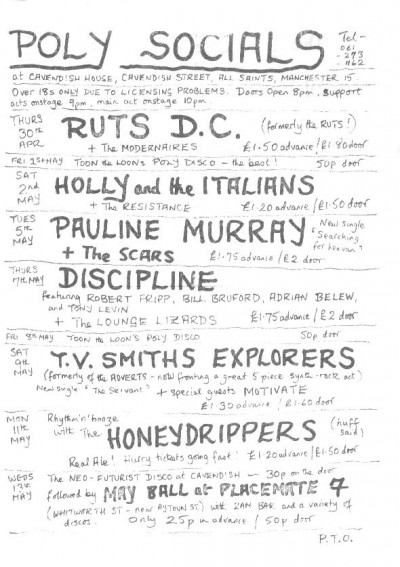 POLY SOCIALS
Tel-
061
-273
1162
at CAVENDISH HOUSE, CAVENDISH STREET, ALL SAINTS, MANCHESTER 15.
Over 18s ONLY DUE TO LICENSING PROBLEMS. Doors Open 8pm, support
acts onstage 9pm, main act onstage 10pm.
THURS 30th APR RUTS D.C. (formerly the RUTS!)
+ The MODERNAIRES £1.50 advance/£1.80 door
FRI 1st MAY TOON the LOON'S POLY DISCO - the best! 50p door
SAT 2nd MAY HOLLY and the ITALIANS
+ The RESISTANCE £1.20 advance/£1.50 door
TUES 5th MAY PAULINE MURRAY New single "Searching for heaven"
+ The SCARS £1.75 advance/£2 door
THURS 7th MAY DISCIPLINE
featuring ROBERT FRIPP, BILL BRUFORD, ADRIAN BELEW,
and TONY LEVIN
+ The LOUNGE LIZARDS £1.75 advance/£2 door
FRI 8th MAY TOON the LOON'S POLY DISCO 50p door
SAT 9th MAY T.V. SMITHS EXPLORERS
(formerly of the ADVERTS - now fronting a great 5 piece synth-rock act)
New single "The Servant" + special guests MOTIVATE
£1.30 advance / £1.60 door
MON 11th MAY Rhythm'n'booze
with The HONEYDRIPPERS (nuff said)
Real Ale! Hurry tickets going fast! £1.20 advance/£1.50 door
WEDS 13th MAY The NEO-FUTURIST DISCO at CAVENDISH - 30p on the door
followed by MAY BALL at PLACEMATE 7
(WHITWORTH ST - near AYTOUN ST.) with 2AM BAR and a variety of
discos. Only 25p in advance / 50p door
P.T.O.